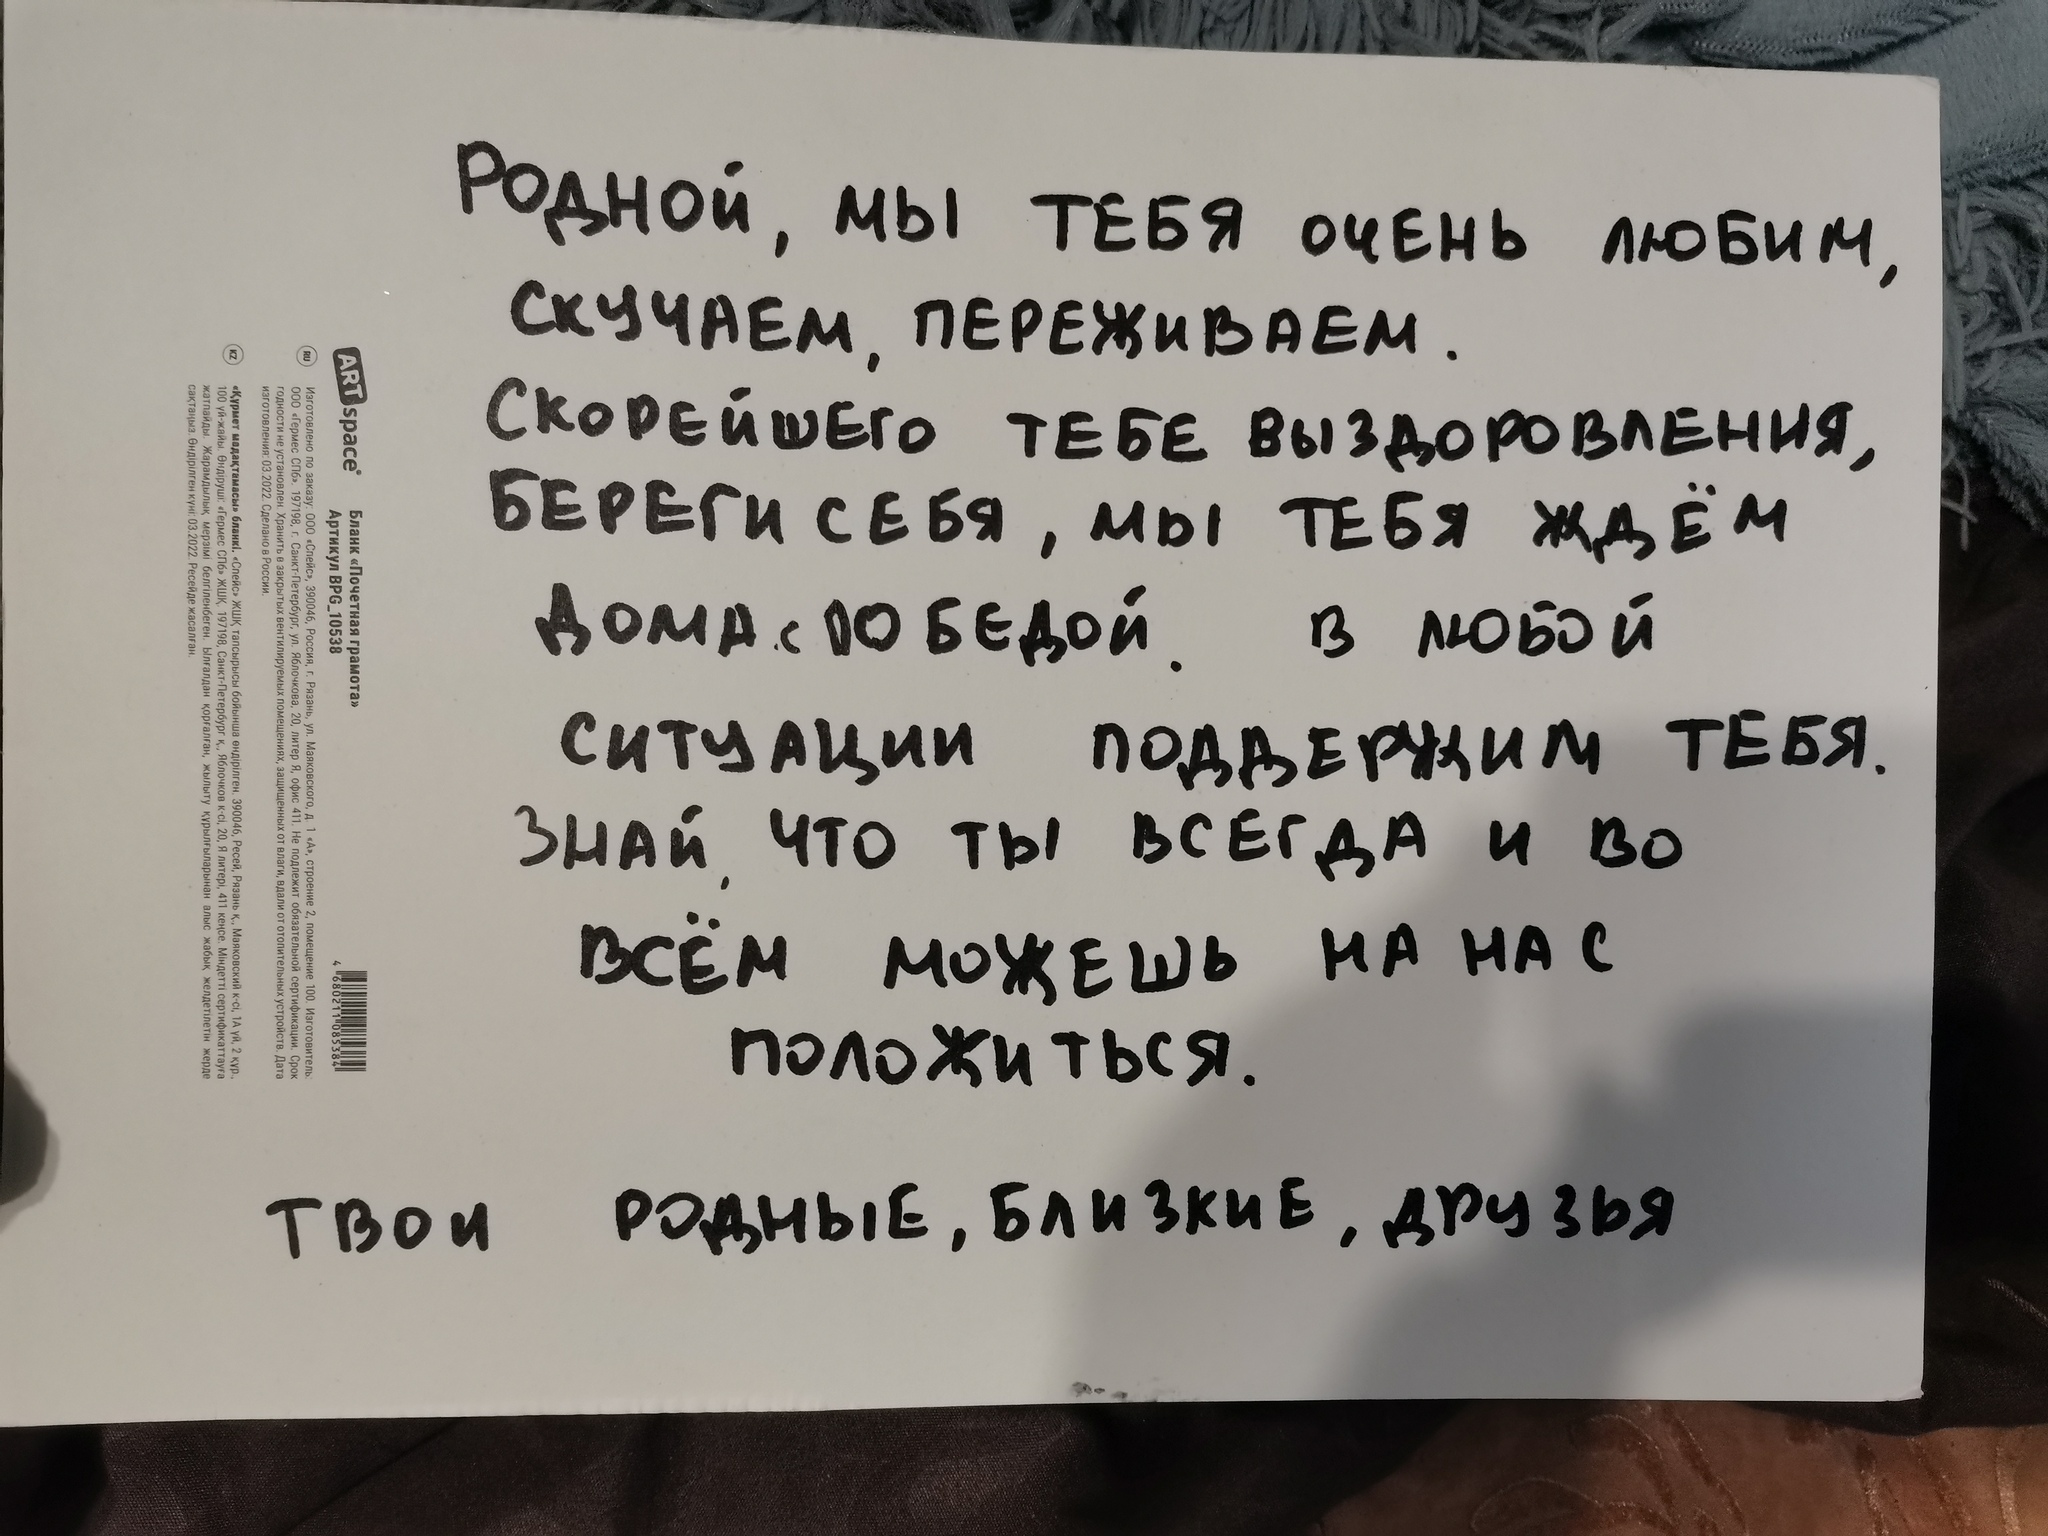 Родной, мы тебя очень любим,
скучаем, переживаем.
Скорейшего тебе выздоровления,
береги себя, мы тебя ждём
дома с победой. В любой
ситуации поддержим тебя.
Знай, что ты всегда и во
всём можешь на нас
положиться.
Твои родные, близкие, друзья
ART space®
Бланк «Почетная грамота»
Артикул BPG_10538
RU
Изготовлено по заказу: ООО «Спейс», 390046, Россия, г. Рязань, ул. Маяковского, д. 1 «А», строение 2, помещение 100. Изготовитель:
ООО «Гермес СПб», 197198, г. Санкт-Петербург, ул. Яблочкова, 20, литер Я, офис 411. Не подлежит обязательной сертификации. Срок
годности не установлен. Хранить в закрытых вентилируемых помещениях, защищенных от влаги, вдали от отопительных устройств. Дата
изготовления: 03.2022. Сделано в России.
KZ
«Құрмет мадақтамасы» бланкі. «Спейс» ЖШҚ тапсырысы бойынша өндірілген. 390046, Ресей, Рязань қ., Маяковский к-сі, 1А үй, 2 құр.,
100 үй-жайы. Өндіруші: «Гермес СПб» ЖШҚ, 197198, Санкт-Петербург қ., Яблочков к-сі, 20, Я литері, 411 кеңсе. Міндетті сертификаттауға
жатпайды. Жарамдылық мерзімі белгіленбеген. Ылғалдан қорғалған, жылыту құрылғыларынан алыс жабық желдетілетін жерде
сақтаңыз. Өндірілген күні: 03.2022. Ресейде жасалған.
4 680211 085384